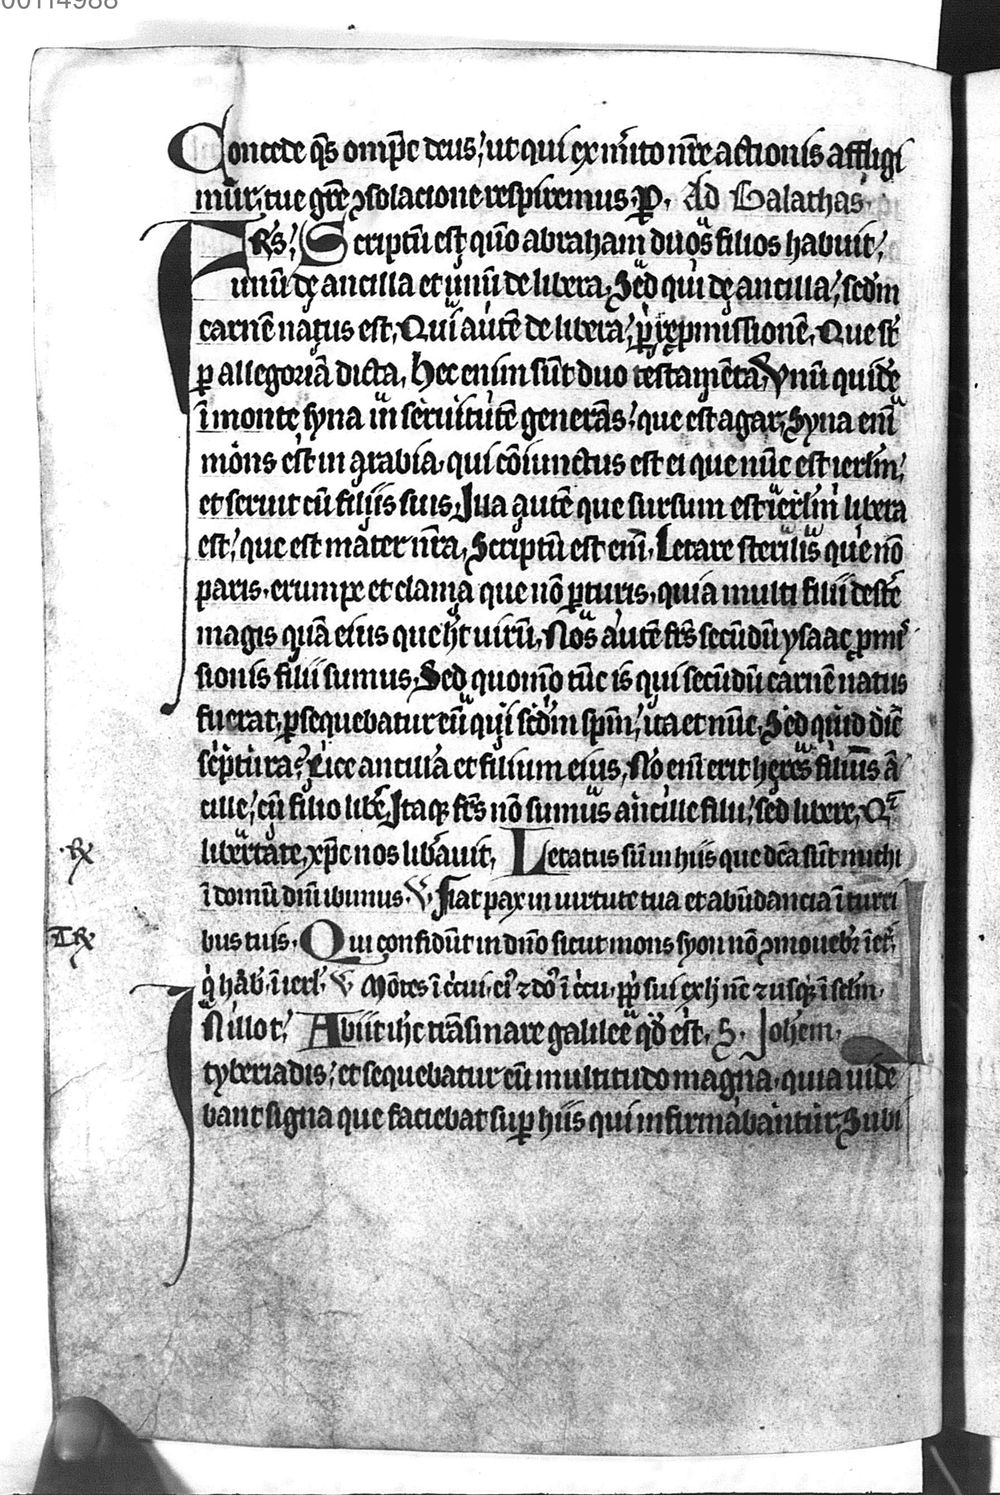 00114988
Concede q̄s om̄p̄c deus, ut qui ex m̄ito nr̄e actionis affligi
mur, tue gr̄e ꝯsolacione respiremus. P. Ad Galathas.
FRS. Scriptū est qm̄o abraham duos filios habuit,
unū de ancilla et unū de libera. Sed qui de ancilla, sedm
carnē natus est, Qui autē de libera, ꝑ repmissionē. Que st̄
ꝑ allegoriā dicta. Hec enim sūt duo testamēta. Vnū quidē
ī monte syna in seruitutē generās, que est agar. Syna enī
mons est in arabia, qui cōiunctus est ei que nūc est ierlm̄,
et seruit cū filiis suis. Illa autē que sursum est ierlm̄ libera
est, que est mater nr̄a. Scriptū est enī. Letare sterilis que nō
paris, erumpe et clama que nō ꝑturis, quia multi filii desertē
magis quā eius que hȳt uirū. Nos autē frs̄ secūdū ysaac ꝓmi
sionis filii sumus. Sed quom̄o tūc is qui secūdū carnē natus
fuerat, ꝑsequebatur eū qui sedm̄ spm̄, ita et nūc. Sed quid dic̄
sc̄ptura? Eice ancillā et filium eius. Nō enī erit heres filius ā
cille, cū filio libe. Itaqꝫ frs̄ nō sumus ancille filii, sed libere. Q
libertate, xp̄c nos libāuit. Letatus sū in hiis que dc̄a sūt michi
ī domū dnī ibimus. V Fiat pax in uirtute tua et abūdancia ī turri
bus tuis. Qui confidūt in dnō sicut mons syon nō ꝯmouebr̄ ī et̄
q̄ hāb̄ ī ierl̄. V Mōtes ī c̄cui, ei et do ī c̄cu, ppl̄i sui ex h nc̄ et usqꝫ ī sclm̄.
ꝶ
Tꝶ
N illot̄, Abiit ihc trās mare galilee qd̄ est. S. Johem.
tyberiadis, et sequebatur eū multitudo magna, quia uide
bant signa que faciebat sup hiis qui infirmabantur. Subi